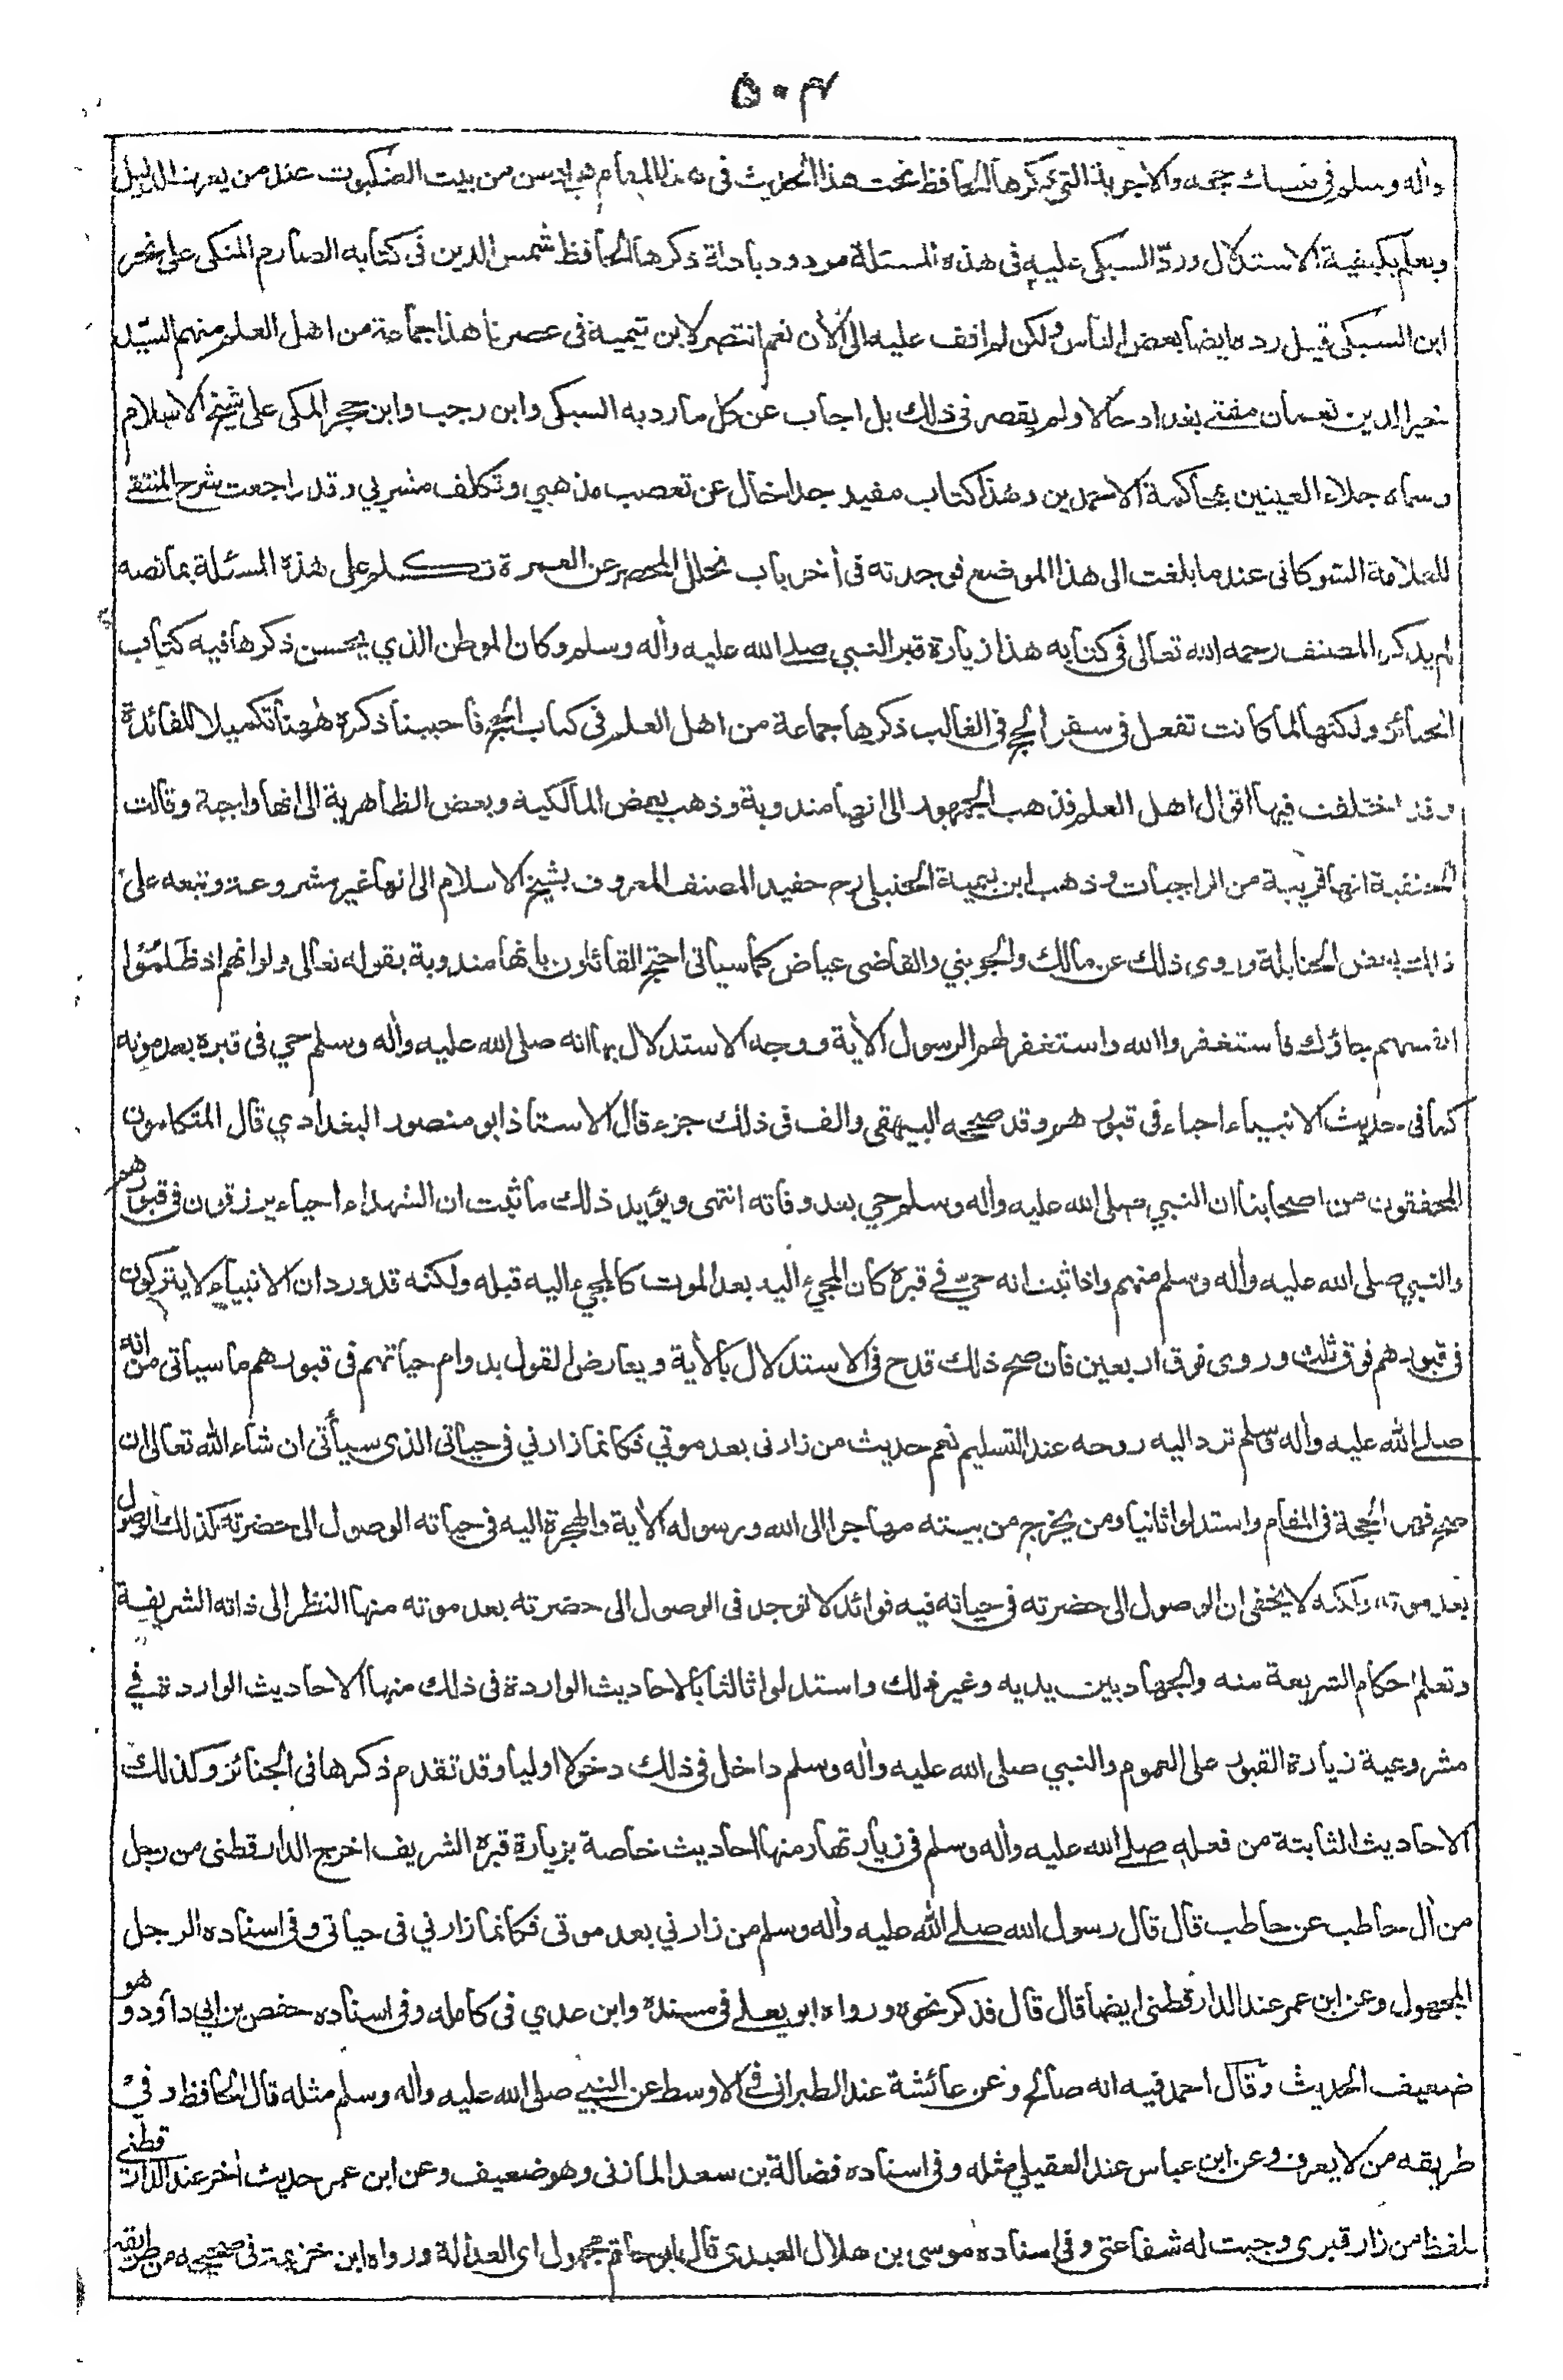 ٥٠٤
وأله وسلم في منسك حجه والاجوبة التي ذكرها الحافظ تحت هذا الحديث في هذا المقام هي اوهن من بيت العنكبوت عند من يعرف الدليل
ويعلم بكيفية الاستدلال وردّ السبكى عليه فى هذه المسئلة مردود بادلة ذكرها الحافظ شمس الدين فى كتابه الصارم المنكى على نحر
ابن السبكى قيل رده ايضا بعض الناس ولكن لم اقف عليه الى الأن نعم انتصر لابن تيمية فى عصرنا هذا جماعة من اهل العلم منهم السيّد
خير الدين نعمان مفتے بغداد حالا ولم يقصر فى ذلك بل اجاب عن كل ما رد به السبكى وابن رجب وابن حجر المكى على شيخ الاسلام
وسماه جلاء العينين بمحاكمة الاحمدين وهذا كتاب مفيد جدا خال عن تعصب مذهبي وتكلف مشربي وقد راجعت شرح المنتقے
للعلامة الشوكانى عند ما بلغت الى هذا الموضع فوجدته فى أخر باب تحلل المحصر عن العمرة تكلم على هذه المسئلة بما نصه
لم يذكر المصنف رحمه الله تعالى فى كتابه هذا زيارة قبر النبي صلے الله عليه وأله وسلم وكان الموطن الذي يحسن ذكرها فيه كتاب
الجنائز ولكنها لما كانت تفعل فى سفر الحج فى الغالب ذكرها جماعة من اهل العلم فى كتاب الحج فاحببنا ذكره هٰهنا تكميلا للفائدة
وقد اختلفت فيها اقوال اهل العلم فذهب الجمهور الى انها مندوبة وذهب بعض المالكية وبعض الظاهرية الى انها واجبة وقالت
الحنفية انها قريبة من الواجبات وذهب ابن تيمية الحنبلى رح حفيد المصنف المعروف بشيخ الاسلام الى انها غير مشروعة وتبعه على
ذلك بعض الحنابلة وروى ذلك عن مالك والجويني والقاضى عياض كما سياتى احتج القائلون بانها مندوبة بقوله تعالى ولو انهم اذ ظلموا
انفسهم جاؤك فاستغفروا الله واستغفر لهم الرسول الأية ووجه الاستدلال بها انه صلى الله عليه وأله وسلم حي فى قبره بعد موته
كما فى حديث الانبياء احياء فى قبورهم وقد صححه البيهقى والف فى ذلك جزء قال الاستاذ ابو منصور البغدادي قال المتكلمون
المحققون من اصحابنا ان النبي صلى الله عليه وأله وسلم حي بعد وفاته انتهى ويؤيد ذلك ما ثبت ان الشهداء احياء يرزقون فى قبورهم
والنبي صلى الله عليه وأله وسلم منهم واذا ثبت انه حيّ فے قبره كان المجئ اليه بعد الموت كالمجئ اليه قبله ولكنه قد ورد ان الانبياء لا يتركون
فى قبورهم فوق ثلث وروى فوق اربعين فان صح ذلك قدح فى الاستدلال بالأية ويعارض القول بدوام حياتهم فى قبورهم ما سياتى من انه
صلے الله عليه وأله وسلم ترد اليه روحه عند التسليم نعم حديث من زارنى بعد موتي فكانما زارني فى حياتى الذى سيأتى ان شاء الله تعالى ان
صح فهو الحجة فى المقام واستدلوا ثانيا ومن يخرج من بيته مهاجرا الى الله ورسوله الأية والهجرة اليه فى حياته الوصول الى حضرته كذلك الوصول
بعد موته ولكنه لا يخفى ان الوصول الى حضرته فى حياته فيه فوائد لا توجد فى الوصول الى حضرته بعد موته منها النظر الى ذاته الشريفة
وتعلم احكام الشريعة منه والجهاد بين يديه وغير ذلك واستدلوا ثالثا بالاحاديث الواردة فى ذلك منها الاحاديث الواردة في
مشروعية زيارة القبور على العموم والنبي صلى الله عليه وأله وسلم داخل فى ذلك دخولا اوليا وقد تقدم ذكرها فى الجنائز وكذلك
الاحاديث الثابتة من فعله صلے الله عليه وأله وسلم فى زيارتها ومنها احاديث خاصة بزيارة قبره الشريف اخرج الدارقطنى من رجل
من أل حاطب عن حاطب قال قال رسول الله صلے الله عليه وأله وسلم من زارني بعد موتى فكانما زارني فى حياتى وفى اسناده الرجل
المجهول وعن ابن عمر عند الدارقطنى ايضا قال قال فذكر نحوه ورواه ابو يعلے فى مسنده وابن عدي فى كامله وفى اسناده حفص بن ابي داؤد وهو
ضعيف الحديث وقال احمد فيه انه صالح وعن عائشة عند الطبرانى فى الاوسط عن النبي صلى الله عليه وأله وسلم مثله قال الحافظ وفي
طريقه من لا يعرف وعن ابن عباس عند العقيلي مثله وفى اسناده فضالة بن سعد المازنى وهو ضعيف وعن ابن عمر حديث أخر عند الدارقطني
بلفظ من زار قبرى وجبت له شفاعتى وفى اسناده موسى بن هلال العبدى قال ابو حاتم مجهول اى العدالة ورواه ابن خزيمة فى صحيحه من طريقه